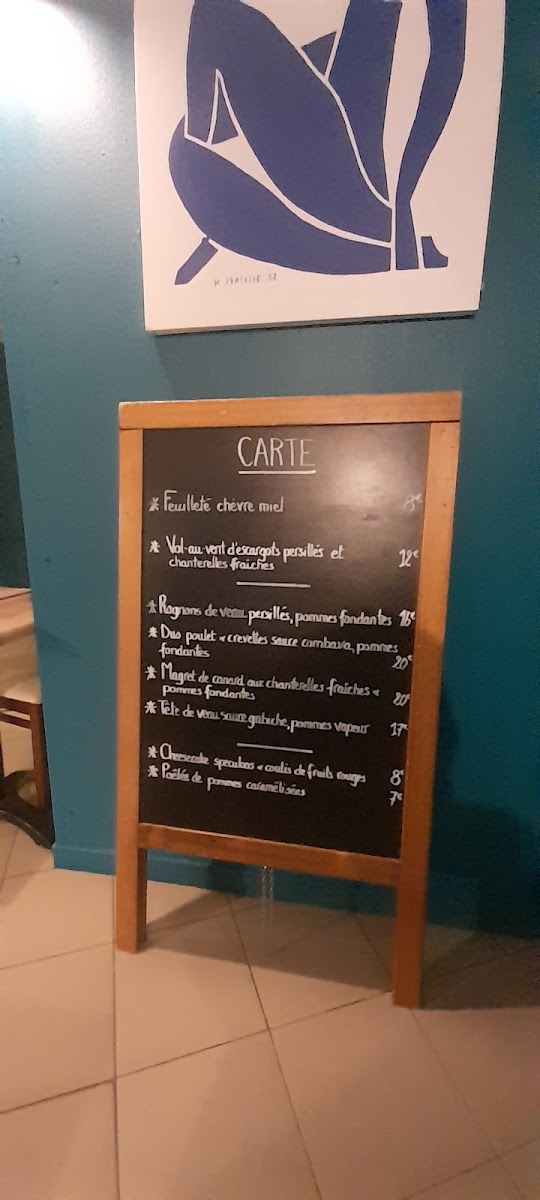 H MATISSE 52
CARTE
* Feuilleté chèvre miel 8€
* Vol-au-vent d'escargots persillés et 12€
chanterelles fraiches
* Rognons de veau persillés, pommes fondantes
* Duo poulet & crevettes sauce combava, pommes
fondantes 20€
* Magret de canard aux chanterelles fraîches &
pommes fondantes 20€
* Tête de veau sauce gribiche, pommes vapeur 17€
* Cheesecake speculoos & coulis de fruits rouges 8€
* Poêlée de pommes caramélisées 7€